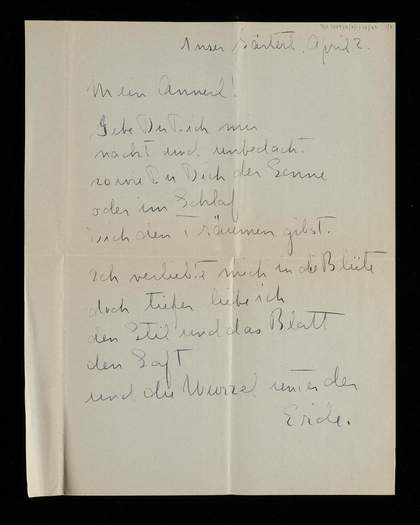 Unser Gärterl, April 2.
Mein Annerl!
Gebe Du Dich mir
nackt und unbedacht.
so wie Du Dich der Sonne
oder im Schlaf
Dich den Träumen gibst.
Ich verliebte mich in die Blüte
doch tiefer liebe ich
den Stil und das Blatt
den Saft
und die Wurzel unter der
Erde.